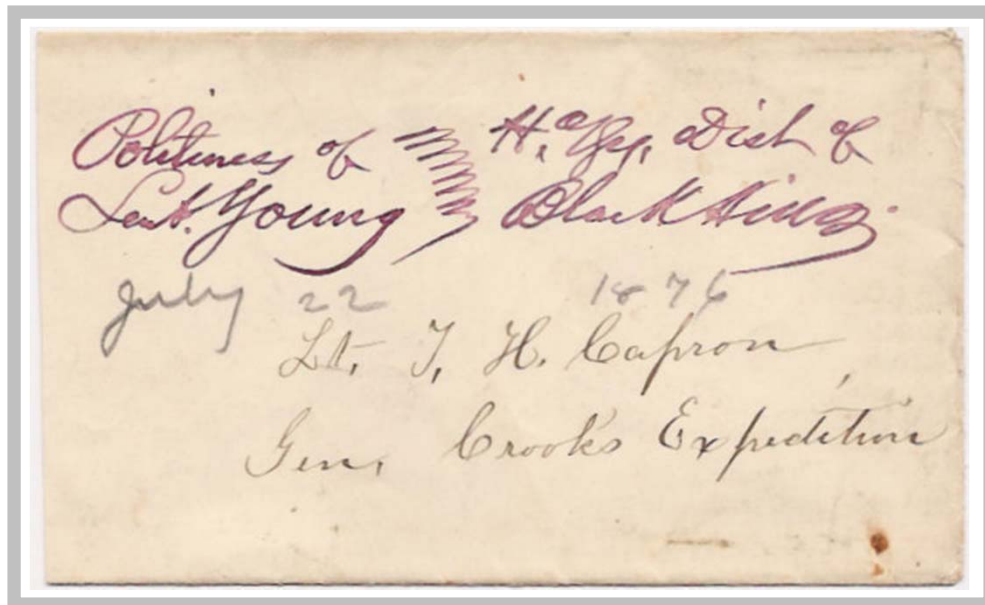 Politeness of
Lieut. Young
Hd. Qrs. Dist of
Black Hills.
July 22 1876
Lt. T. H. Capron
Gen. Crook's Expedition